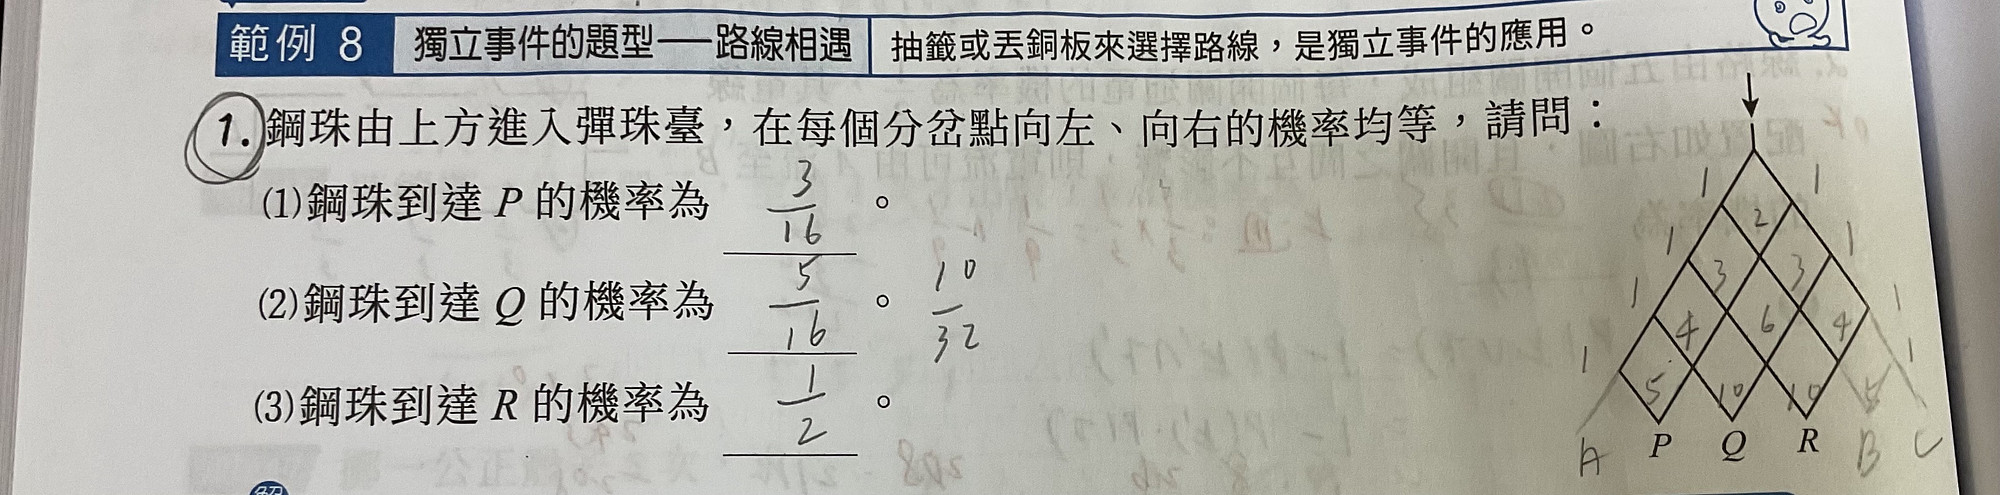 範例 8 獨立事件的題型──路線相遇 抽籤或丟銅板來選擇路線，是獨立事件的應用。
1. 鋼珠由上方進入彈珠臺，在每個分岔點向左、向右的機率均等，請問：
(1)鋼珠到達 P 的機率為 3/16 。
(2)鋼珠到達 Q 的機率為 5/16 。 10/32
(3)鋼珠到達 R 的機率為 1/2 。
1 1
1 2 1
1 3 3 1
1 4 6 4 1
5 10 10 5
A P Q R B C
解